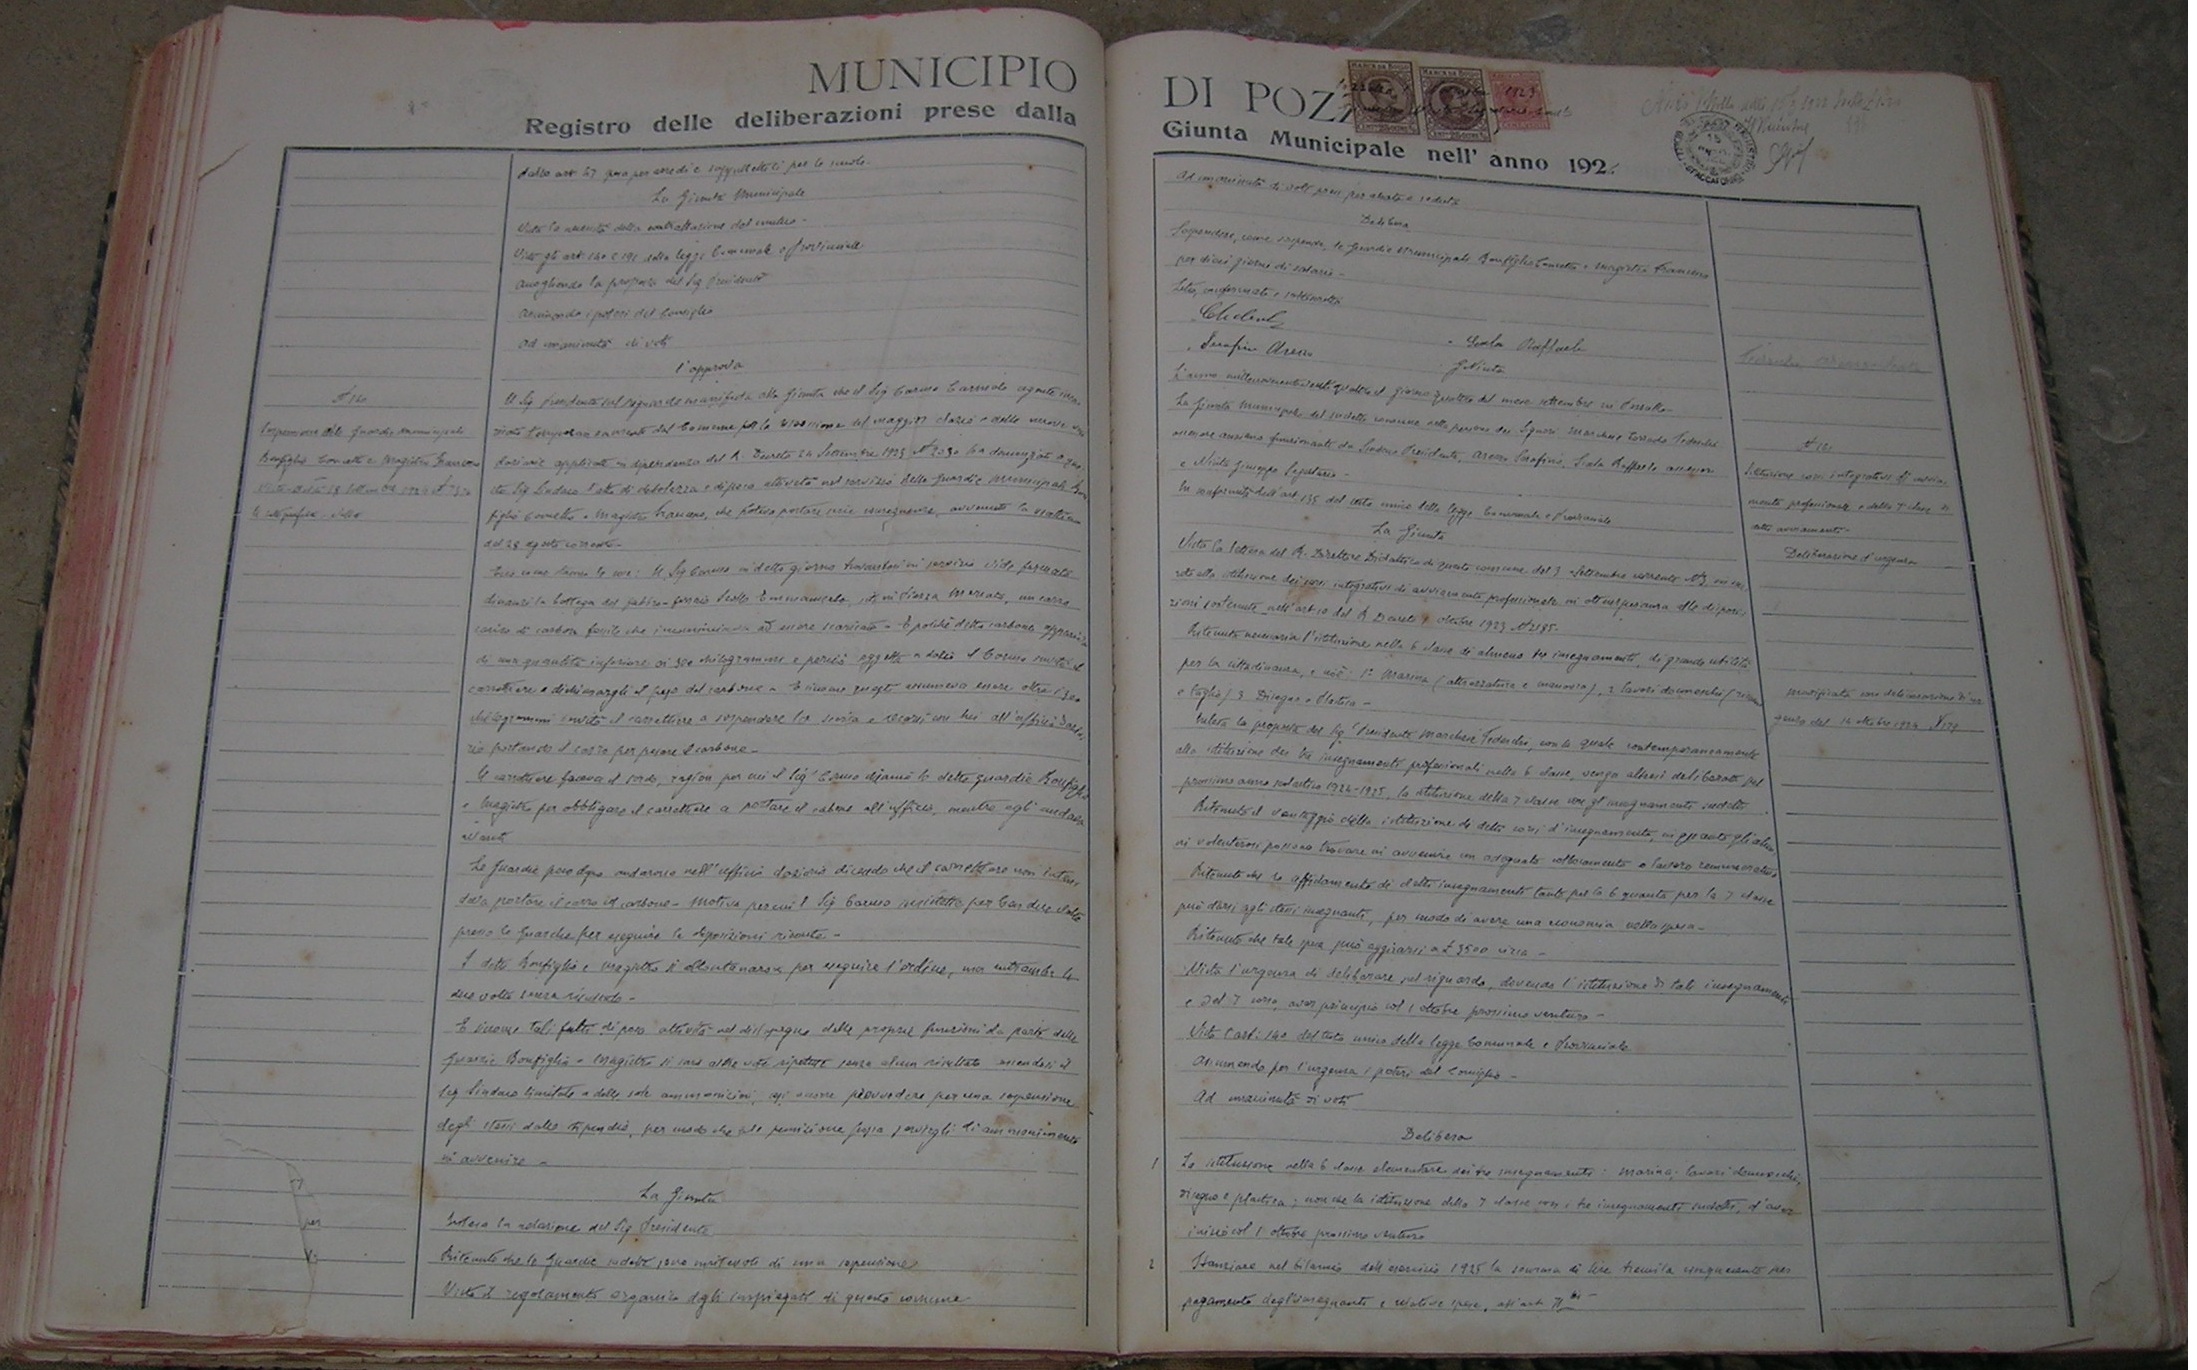 MUNICIPIO
Registro delle deliberazioni prese dalla
dallo art 67 spesa per arredi e suppellettili per le scuole.
La Giunta Municipale
Vista la necessità della contrattazione del mutuo -
Visti gli art 140 e della legge Comunale e Provinciale
accogliendo la proposta del Sig Presidente
Assumendo i poteri del Consiglio
Ad unanimità di voti
l'approva
Sospensione delle Guardie Municipali
Bonfiglio Concetto e Magistro Francesco
Il Sig Presidente sul riguardo manifesta alla Giunta che il Sig Caruso Carmelo agente
del Comune per la riscossione del maggior dazio e delle nuove
daziarie applicate in dipendenza del R. Decreto 24 Settembre 1923 N 2030 ha denunziato a
Sig Sindaco l'atto di debolezza e di poca attività nel servizio delle guardie municipali
Concetto e Magistro Francesco, che poteva portare serie conseguenze, avvenuto la mattina
del 28 agosto corrente -
Ecco come stanno le cose: Il Sig Caruso in detto giorno trovandosi in servizio vide fermato
dinanzi la bottega del fabbro-ferraio Scollo Emmanuele, sita in Piazza Mercato, un carro
carico di carbon fossile che incominciava ad essere scaricato - E poiché detto carbone
di una quantità inferiore ai 300 chilogrammi e perciò soggetto a dazio il Caruso invitò il
carrettiere a dichiarargli il peso del carbone - E siccome questi assumeva essere oltre i 300
chilogrammi invitò il carrettiere a sospendere lo scarico e recarsi con lui all'ufficio
portando il carro per pesare il carbone -
Il carrettiere faceva il sordo, ragion per cui il Sig Caruso chiamò le dette guardie Bonfiglio
e Magistro per obbligare il carrettiere a portare il carbone all'ufficio, mentre egli andava
avanti
Le Guardie poco dopo andarono nell'ufficio daziario dicendo che il carrettiere non
portare il carro col carbone - Motivo per cui il Sig Caruso insistette per ben due volte
presso le guardie per eseguire le disposizioni ricevute -
I detti Bonfiglio e Magistro si allontanarono per eseguire l'ordine, ma entrambe le
due volte senza
E siccome tali fatti di poca attività nel disimpegno delle proprie funzioni da parte delle
Guardie Bonfiglio e Magistro si sono altre volte ripetute senza alcun risultato essendosi il
Sig Sindaco limitato a delle sole ammonizioni, occorre provvedere per una sospensione
degli stessi dallo stipendio, per modo che tale punizione possa servirgli di ammonimento
in avvenire -
La Giunta
Intesa la relazione del Sig Presidente
Ritenuto che le Guardie suddette sono meritevoli di una sospensione
Visto il regolamento organico degli impiegati di questo comune
DI POZ
Giunta Municipale nell' anno 192
Ad unanimità di voti presi per alzata e seduta
Delibera
Sospendere, come sospende, le guardie Municipali Bonfiglio Concetto e Magistro Francesco
per dieci giorni di salario -
Letto, confermato e sottoscritto
Serafino Arezzo
Scala Raffaele
G Nicita
L'anno millenovecentoventiquattro il giorno quattro del mese settembre in Pozzallo -
La Giunta Municipale del suddetto comune nelle persone dei Signori Marchese Corrado Tedeschi
assessore anziano funzionante da Sindaco Presidente, Arezzo Serafino, Scala Raffaele assessori
e Nicita Giuseppe Segretario -
In conformità dell'art. 135 del testo unico della legge Comunale e Provinciale
Istituzione corsi integrativi di avvia-
mento professionale e della 7 classe di
detto avviamento -
Deliberazione d'urgenza
La Giunta
Vista la lettera del R. Direttore Didattico di questo comune del 3 Settembre corrente
alla istituzione dei corsi integrativi di avviamento professionale in ottemperanza alle disposi-
zioni contenute nell'art 10 del R Decreto 1 ottobre 1923 N 2185 -
Ritenuta necessaria l'istituzione nella 6 classe di almeno tre insegnamenti, di grande utilità
per la cittadinanza, e cioè: 1° Marina (attrezzatura e manovra), 2 lavori donneschi
e taglio) 3 Disegno e Plastica -
modificata con deliberazione d'ur-
genza del 14 ottobre 1924
la proposta del Sig Presidente Marchese Tedeschi, con la quale contemporaneamente
alla istituzione dei tre insegnamenti professionali nella 6 classe, venga altresì deliberato pel
prossimo anno scolastico 1924-1925, la istituzione della 7 classe con gl'insegnamenti suddetti
Ritenuto il vantaggio della istituzione di detti corsi d'insegnamento, in quanto gli alun-
ni volenterosi possono trovare in avvenire un adeguato collocamento e lavoro remunerativo
Ritenuto che lo affidamento di detti insegnamenti tanto per la 6 quanto per la 7 classe
può darsi agli stessi insegnanti, per modo di avere una economia nella spesa -
Ritenuto che tale spesa può aggirarsi a £ 3500 circa -
Vista l'urgenza di deliberare sul riguardo, dovendo l'istituzione di tali insegnamenti
e del 7 corso, aver principio col 1 ottobre prossimo venturo -
Visto l'art: 140 del testo unico della legge Comunale e Provinciale
Assumendo per l'urgenza i poteri del Consiglio -
Ad unanimità di voti
Delibera
1 La istituzione nella 6 classe elementare dei tre insegnamenti: Marina; lavori donneschi;
disegno e plastica; nonché la istituzione della 7 classe con i tre insegnamenti suddetti, d'aver
inizio col 1 ottobre prossimo venturo
2 Stanziare nel bilancio dell'esercizio 1925 la somma di lire tremila cinquecento per
pagamento degl'insegnanti e relative spese, all'art